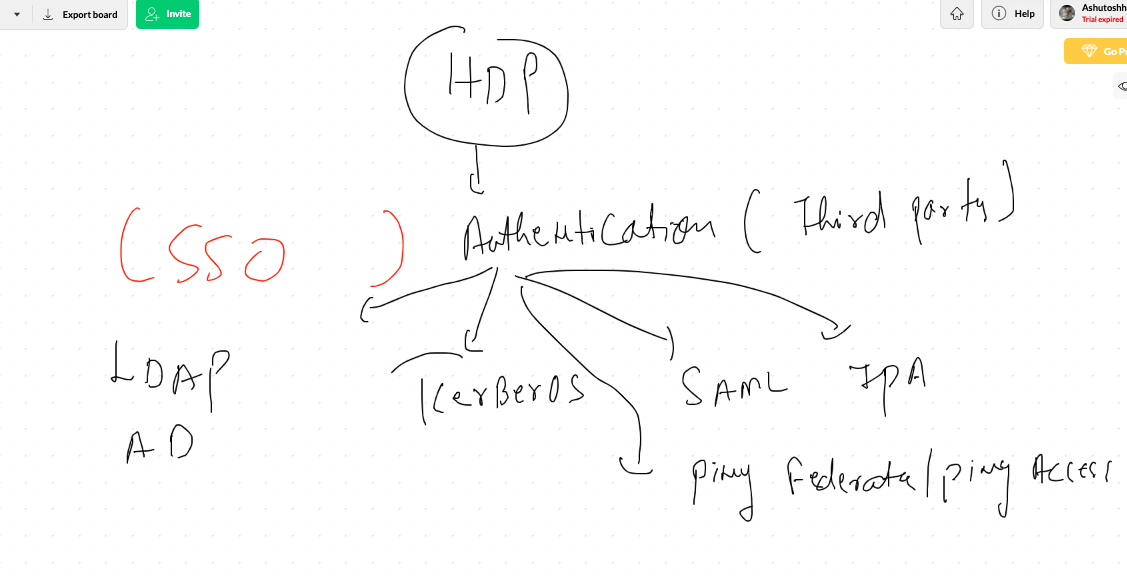 Export board
Invite
Help
Ashutoshh
Trial expired
Go P
HDP
Authentication (Third party)
(SSO )
LDAP
AD
KerBerOS
SAML
IPA
Ping Federate/ping Access